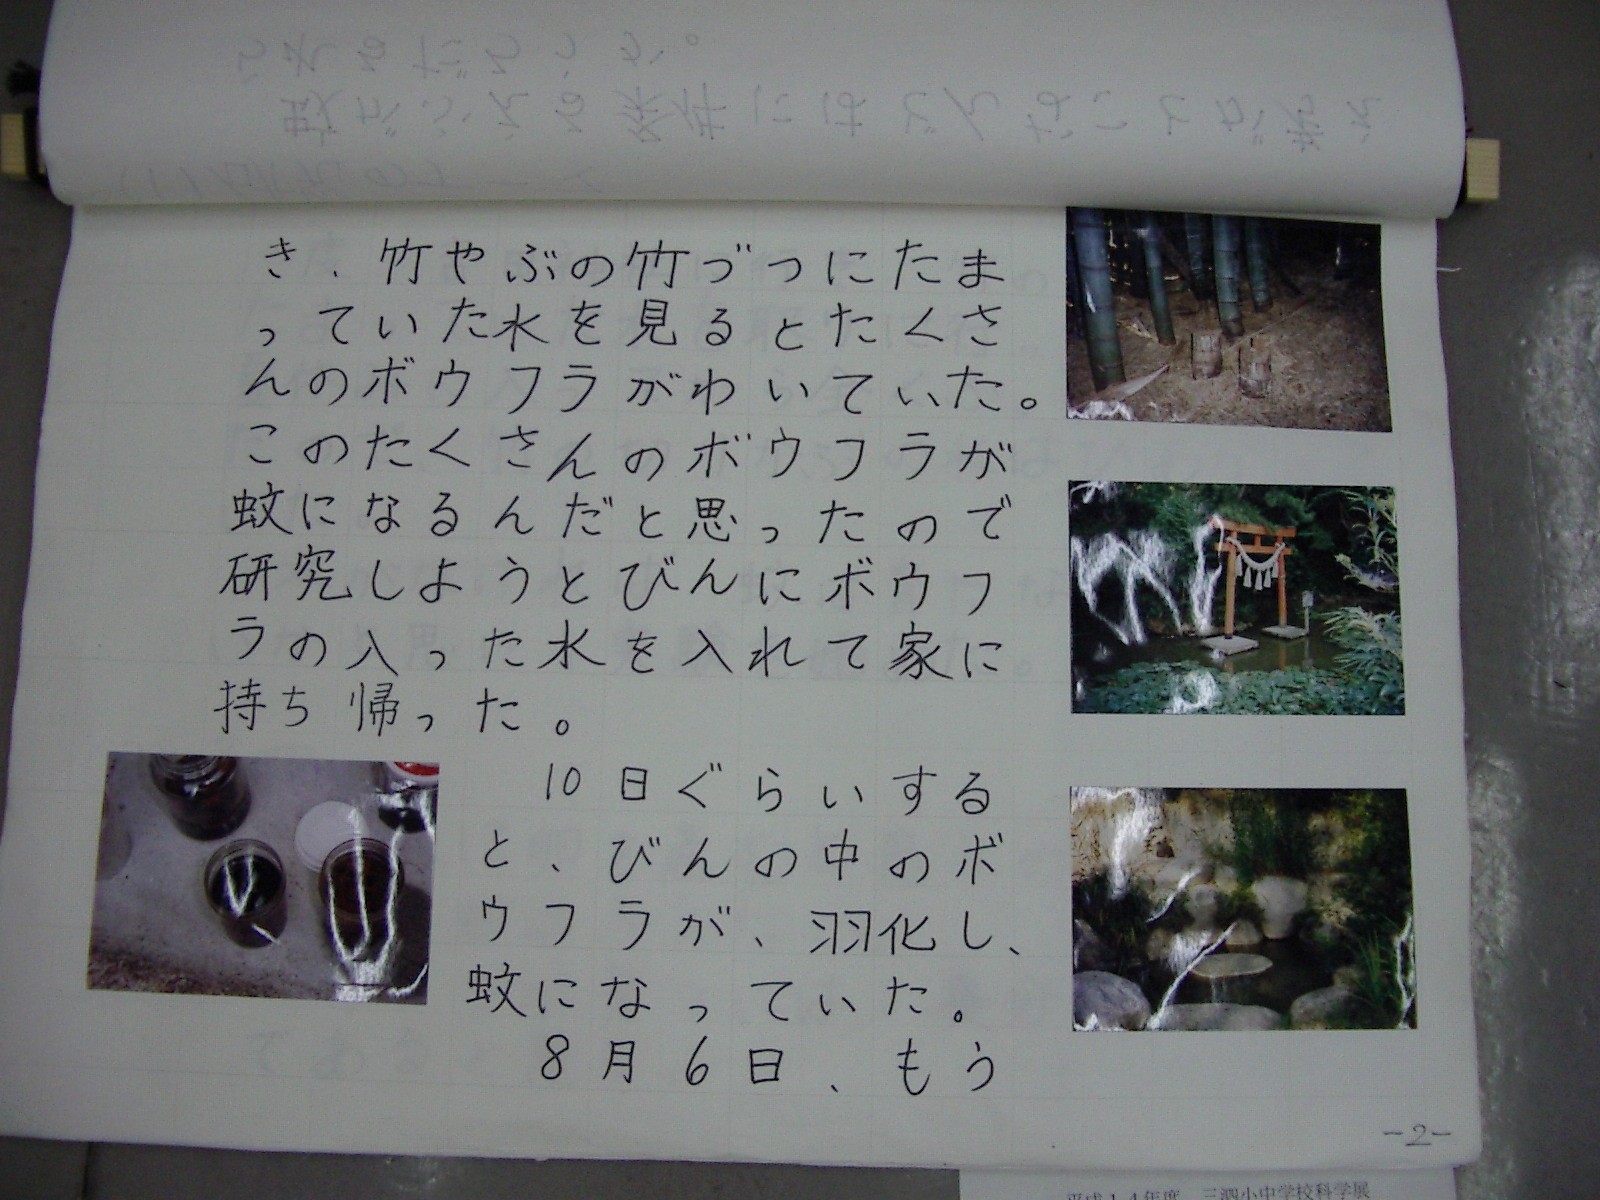 き、竹やぶの竹づつにたま
っていた水を見るとたくさ
んのボウフラがわいていた。
このたくさんのボウフラが
蚊になるんだと思ったので
研究しようとびんにボウフ
ラの入った水を入れて家に
持ち帰った。
10日ぐらいする
と、びんの中のボ
ウフラが、羽化し、
蚊になっていた。
8月6日、もう
-2-
平成14年度 三泗小中学校科学展